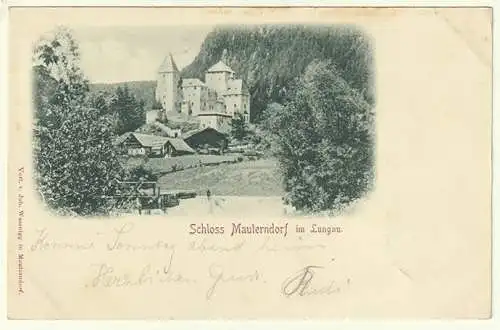 Schloss Mauterndorf im Lungau
Komme Sonntag abend
Herzlichen Gruß
Verl. v. Joh. Wessigg in Mauterndorf.